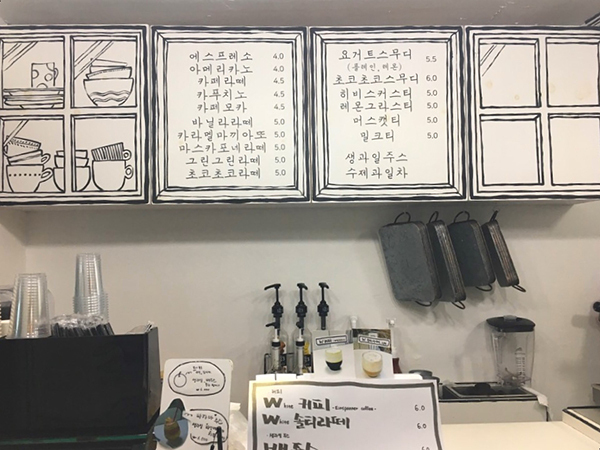 에스프레소 4.0
아메리카노 4.0
카페라떼 4.5
카푸치노 4.5
카페모카 4.5
바닐라라떼 5.0
카라멜마끼아또 5.0
마스카포네라떼 5.0
그린그린라떼 5.0
초코초코라떼 5.0
요거트스무디 5.5
(플레인, 레몬)
초코초코스무디 6.0
히비스커스티 5.0
레몬그라스티 5.0
머스캣티 5.0
밀크티 5.0
생과일주스
수제과일차
커피
Wine 커피 6.0
Wine 솔티라떼 6.0
6.0